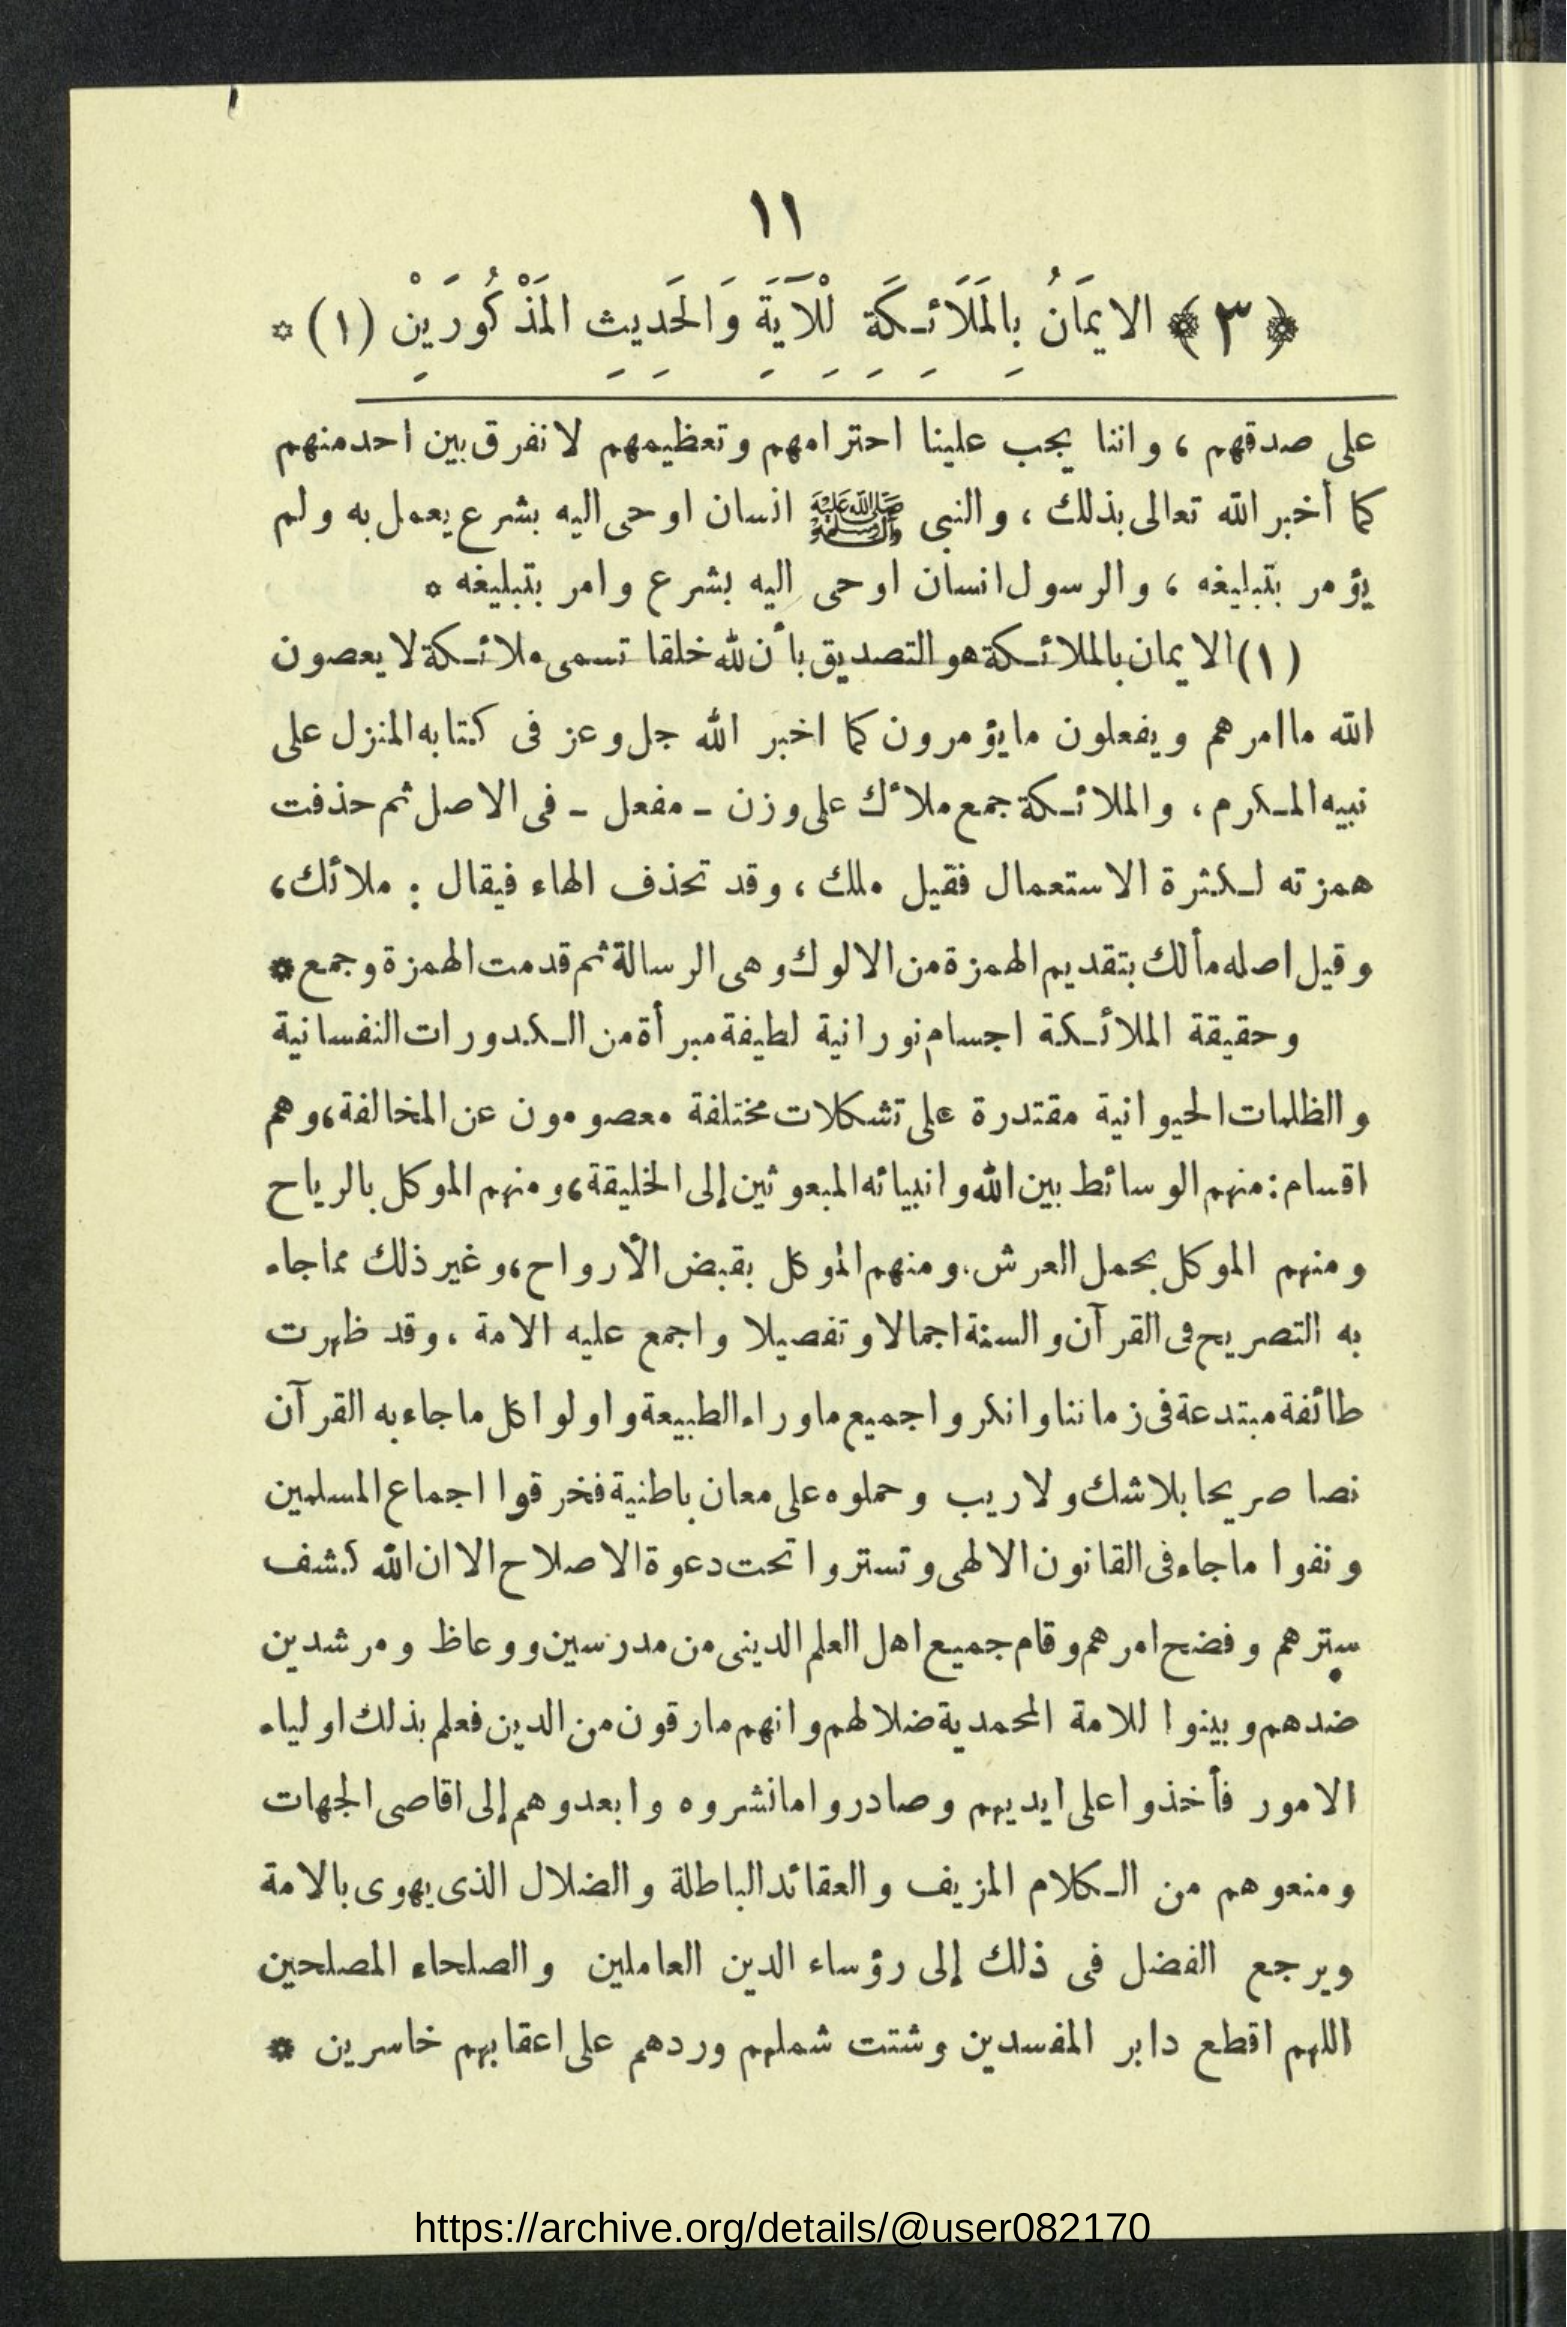 ١١
﴿٣﴾ الايمَانُ بِالمَلَائِـكَةِ لِلْآيَةِ وَالحَدِيثِ المَذْكُورَيْنِ (١) *
على صدقهم ، واننا يجب علينا احترامهم وتعظيمهم لا نفرق بين احد منهم
كما أخبر الله تعالى بذلك ، والنبى ﷺ انسان اوحى اليه بشرع يعمل به ولم
يؤمر بتبليغه ، والرسول انسان اوحى اليه بشرع وامر بتبليغه *
(١) الايمان بالملائـكة هو التصديق بأن لله خلقا تسمى ملائـكة لا يعصون
الله ما امرهم ويفعلون ما يؤمرون كما اخبر الله جل وعز فى كتابه المنزل على
نبيه المـكرم ، والملائـكة جمع ملأك على وزن ـ مفعل ـ فى الاصل ثم حذفت
همزته لـكثرة الاستعمال فقيل ملك ، وقد تحذف الهاء فيقال : ملائك ،
وقيل اصله مألك بتقديم الهمزة من الالوك وهى الرسالة ثم قدمت الهمزة وجمع *
وحقيقة الملائـكة اجسام نورانية لطيفة مبرأة من الـكدورات النفسانية
والظلمات الحيوانية مقتدرة على تشكلات مختلفة معصومون عن المخالفة ، وهم
اقسام : منهم الوسائط بين الله وانبيائه المبعوثين إلى الخليقة ، ومنهم الموكل بالرياح
ومنهم الموكل بحمل العرش ، ومنهم الموكل بقبض الأرواح ، وغير ذلك مما جاء
به التصريح فى القرآن والسنة اجمالا وتفصيلا واجمع عليه الامة ، وقد ظهرت
طائفة مبتدعة فى زماننا وانكروا جميع ماوراء الطبيعة واولوا كل ما جاء به القرآن
نصا صريحا بلا شك ولا ريب وحملوه على معان باطنية فخرقوا اجماع المسلمين
ونفوا ما جاء فى القانون الالهى وتستروا تحت دعوة الاصلاح الا ان الله كشف
سترهم وفضح امرهم وقام جميع اهل العلم الدينى من مدرسين ووعاظ ومرشدين
ضدهم وبينوا للامة المحمدية ضلالهم وانهم مارقون من الدين فعلم بذلك اولياء
الامور فأخذوا على ايديهم وصادروا ما نشروه وابعدوهم إلى اقاصى الجهات
ومنعوهم من الـكلام المزيف والعقائد الباطلة والضلال الذى يهوى بالامة
ويرجع الفضل فى ذلك إلى رؤساء الدين العاملين والصلحاء المصلحين
اللهم اقطع دابر المفسدين وشتت شملهم وردهم على اعقابهم خاسرين *
https://archive.org/details/@user082170